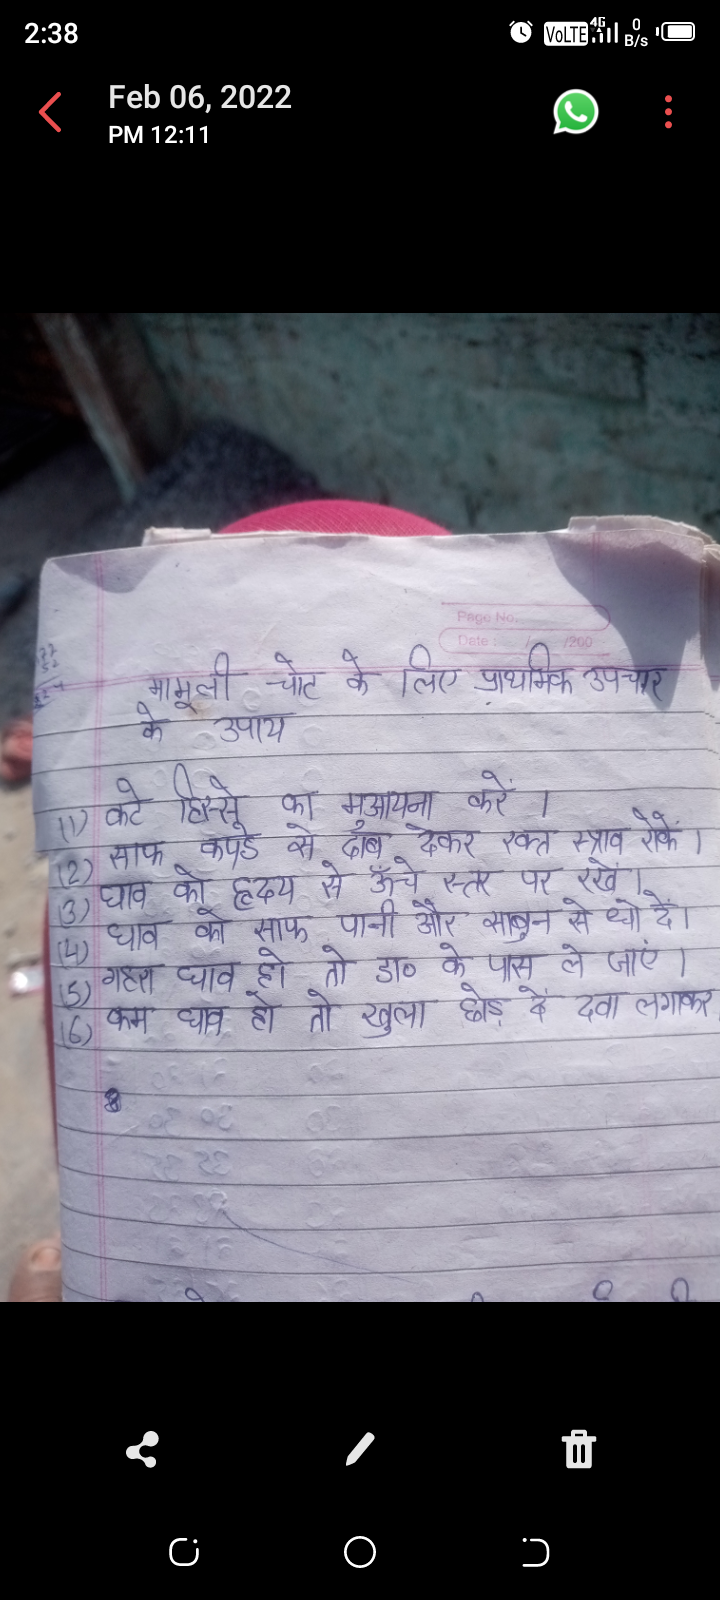 2:38
VoLTE 4G 0 B/s
Feb 06, 2022
PM 12:11
Page No.
Date : / /200
मामूली चोट के लिए प्राथमिक उपचार
के उपाय
(1) कटे हिस्से का मुआयना करें ।
(2) साफ कपड़े से दाब देकर रक्त स्त्राव रोकें ।
(3) घाव को हृदय से ऊँचे स्तर पर रखें ।
(4) घाव को साफ पानी और साबुन से धो दें।
(5) गहरा घाव हो तो डा० के पास ले जाएं ।
(6) कम घाव हो तो खुला छोड़ दें दवा लगाकर